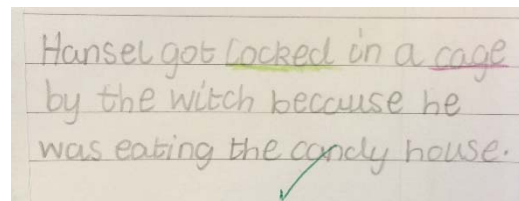 Hansel got locked in a cage
by the witch because he
was eating the candy house.